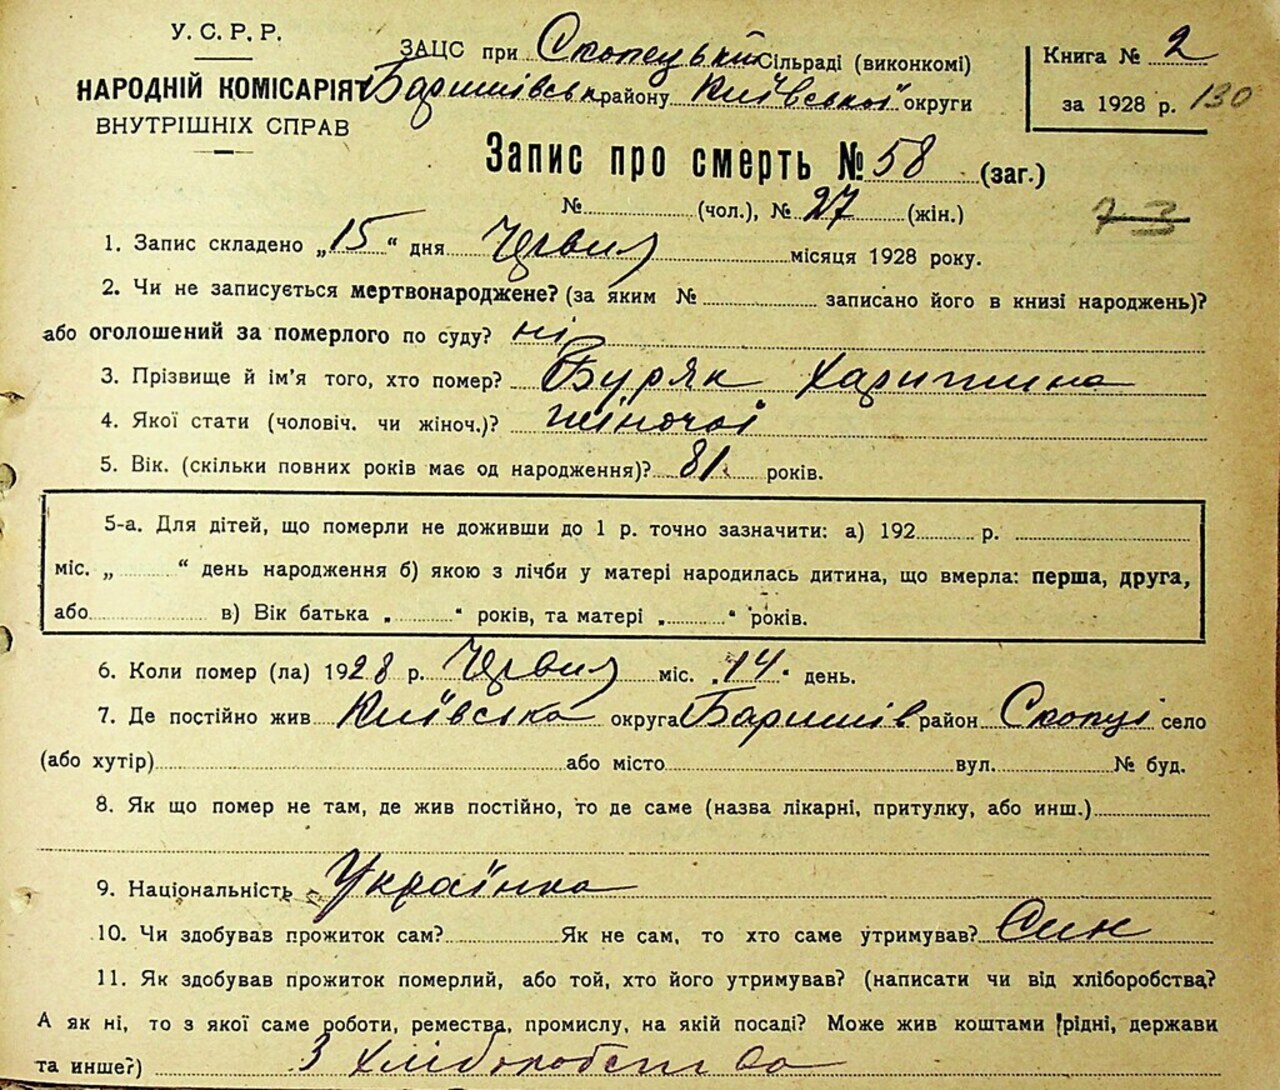 У. С. Р. Р.
НАРОДНІЙ КОМІСАРІЯТ
ВНУТРІШНІХ СПРАВ
ЗАЦС при Скопецький Сільраді (виконкомі)
Баришівськ району Київської округи
Книга № 2
за 1928 р. 130
Запис про смерть № 58 (заг.)
№ (чол.), № 27 (жін.)
73
1. Запис складено „15“ дня Червня місяця 1928 року.
2. Чи не записується мертвонароджене? (за яким № записано його в книзі народжень)?
або оголошений за померлого по суду? ні
3. Прізвище й ім’я того, хто помер? Буряк Харитина
4. Якої стати (чоловіч. чи жіноч.)? жіночої
5. Вік. (скільки повних років має од народження)? 81 років.
5-а. Для дітей, що померли не доживши до 1 р. точно зазначити: а) 192 р.
міс. „ “ день народження б) якою з лічби у матері народилась дитина, що вмерла: перша, друга,
або в) Вік батька „ “ років, та матері „ “ років.
6. Коли помер (ла) 1928 р. Червня міс. „14“ день.
7. Де постійно жив Київська округа Баришів район Скопці село
(або хутір) або місто вул. № буд.
8. Як що помер не там, де жив постійно, то де саме (назва лікарні, притулку, або инш.)
9. Національність Українка
10. Чи здобував прожиток сам? Як не сам, то хто саме утримував? Син
11. Як здобував прожиток померлий, або той, хто його утримував? (написати чи від хліборобства?
А як ні, то з якої саме роботи, ремества, промислу, на якій посаді? Може жив коштами рідні, держави
та инше?) З хліборобства